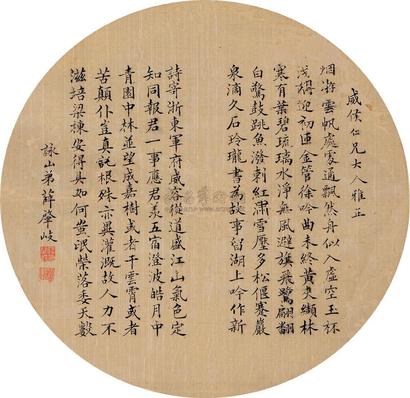 侯仁兄大人雅正
烟渚雲帆處處通飄然舟似入虛空玉杯
淺酌初匝金管徐吟曲未終黃夾纈林
寒有葉碧琉璃水淨無風避旗飛鷺翩翻
白驚鼓跳魚潑剌紅澗雪壓多松偃蹇巖
泉滴久石玲瓏書為故事留湖上吟作新
詩寄浙東軍府威容從道盛江山氣色定
知同報君一事應君羨五宿澄波皓月中
青園中林並望成嘉樹或者干雲霄或者
苦顛仆豈真託根殊亦異灌溉故人力不
滋培梁棟安得具如何蚩氓榮落委天數
詠山弟薛肇岐